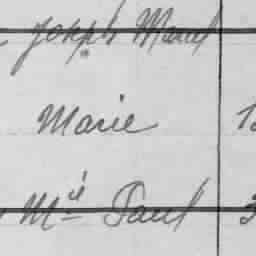 Joseph Marcel
Marie 1
Mie Paul 3